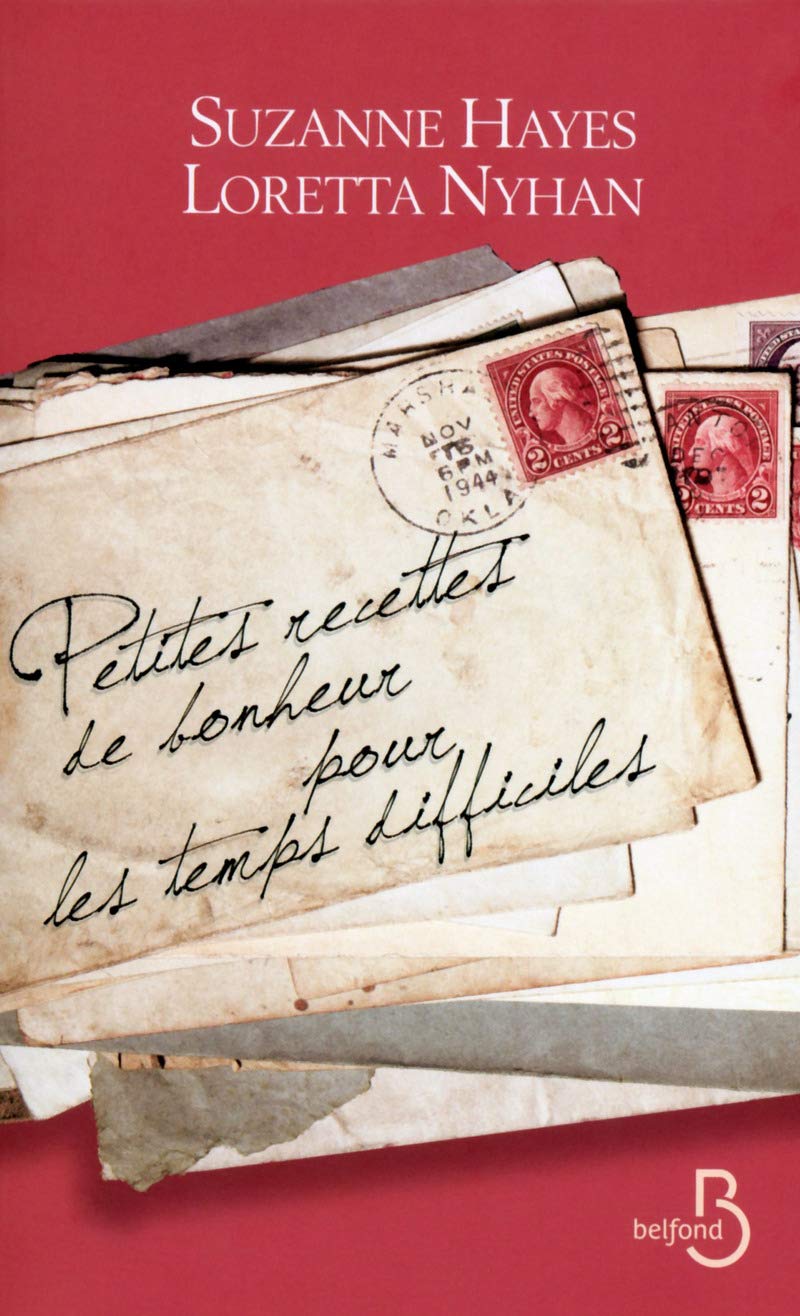 SUZANNE HAYES
LORETTA NYHAN
MARSHA
NOV
6 PM
1944
OKLA
UNITED STATES POSTAGE
2 CENTS 2
DEC
CENTS 2
Petites recettes
de bonheur
pour
les temps difficiles
belfond